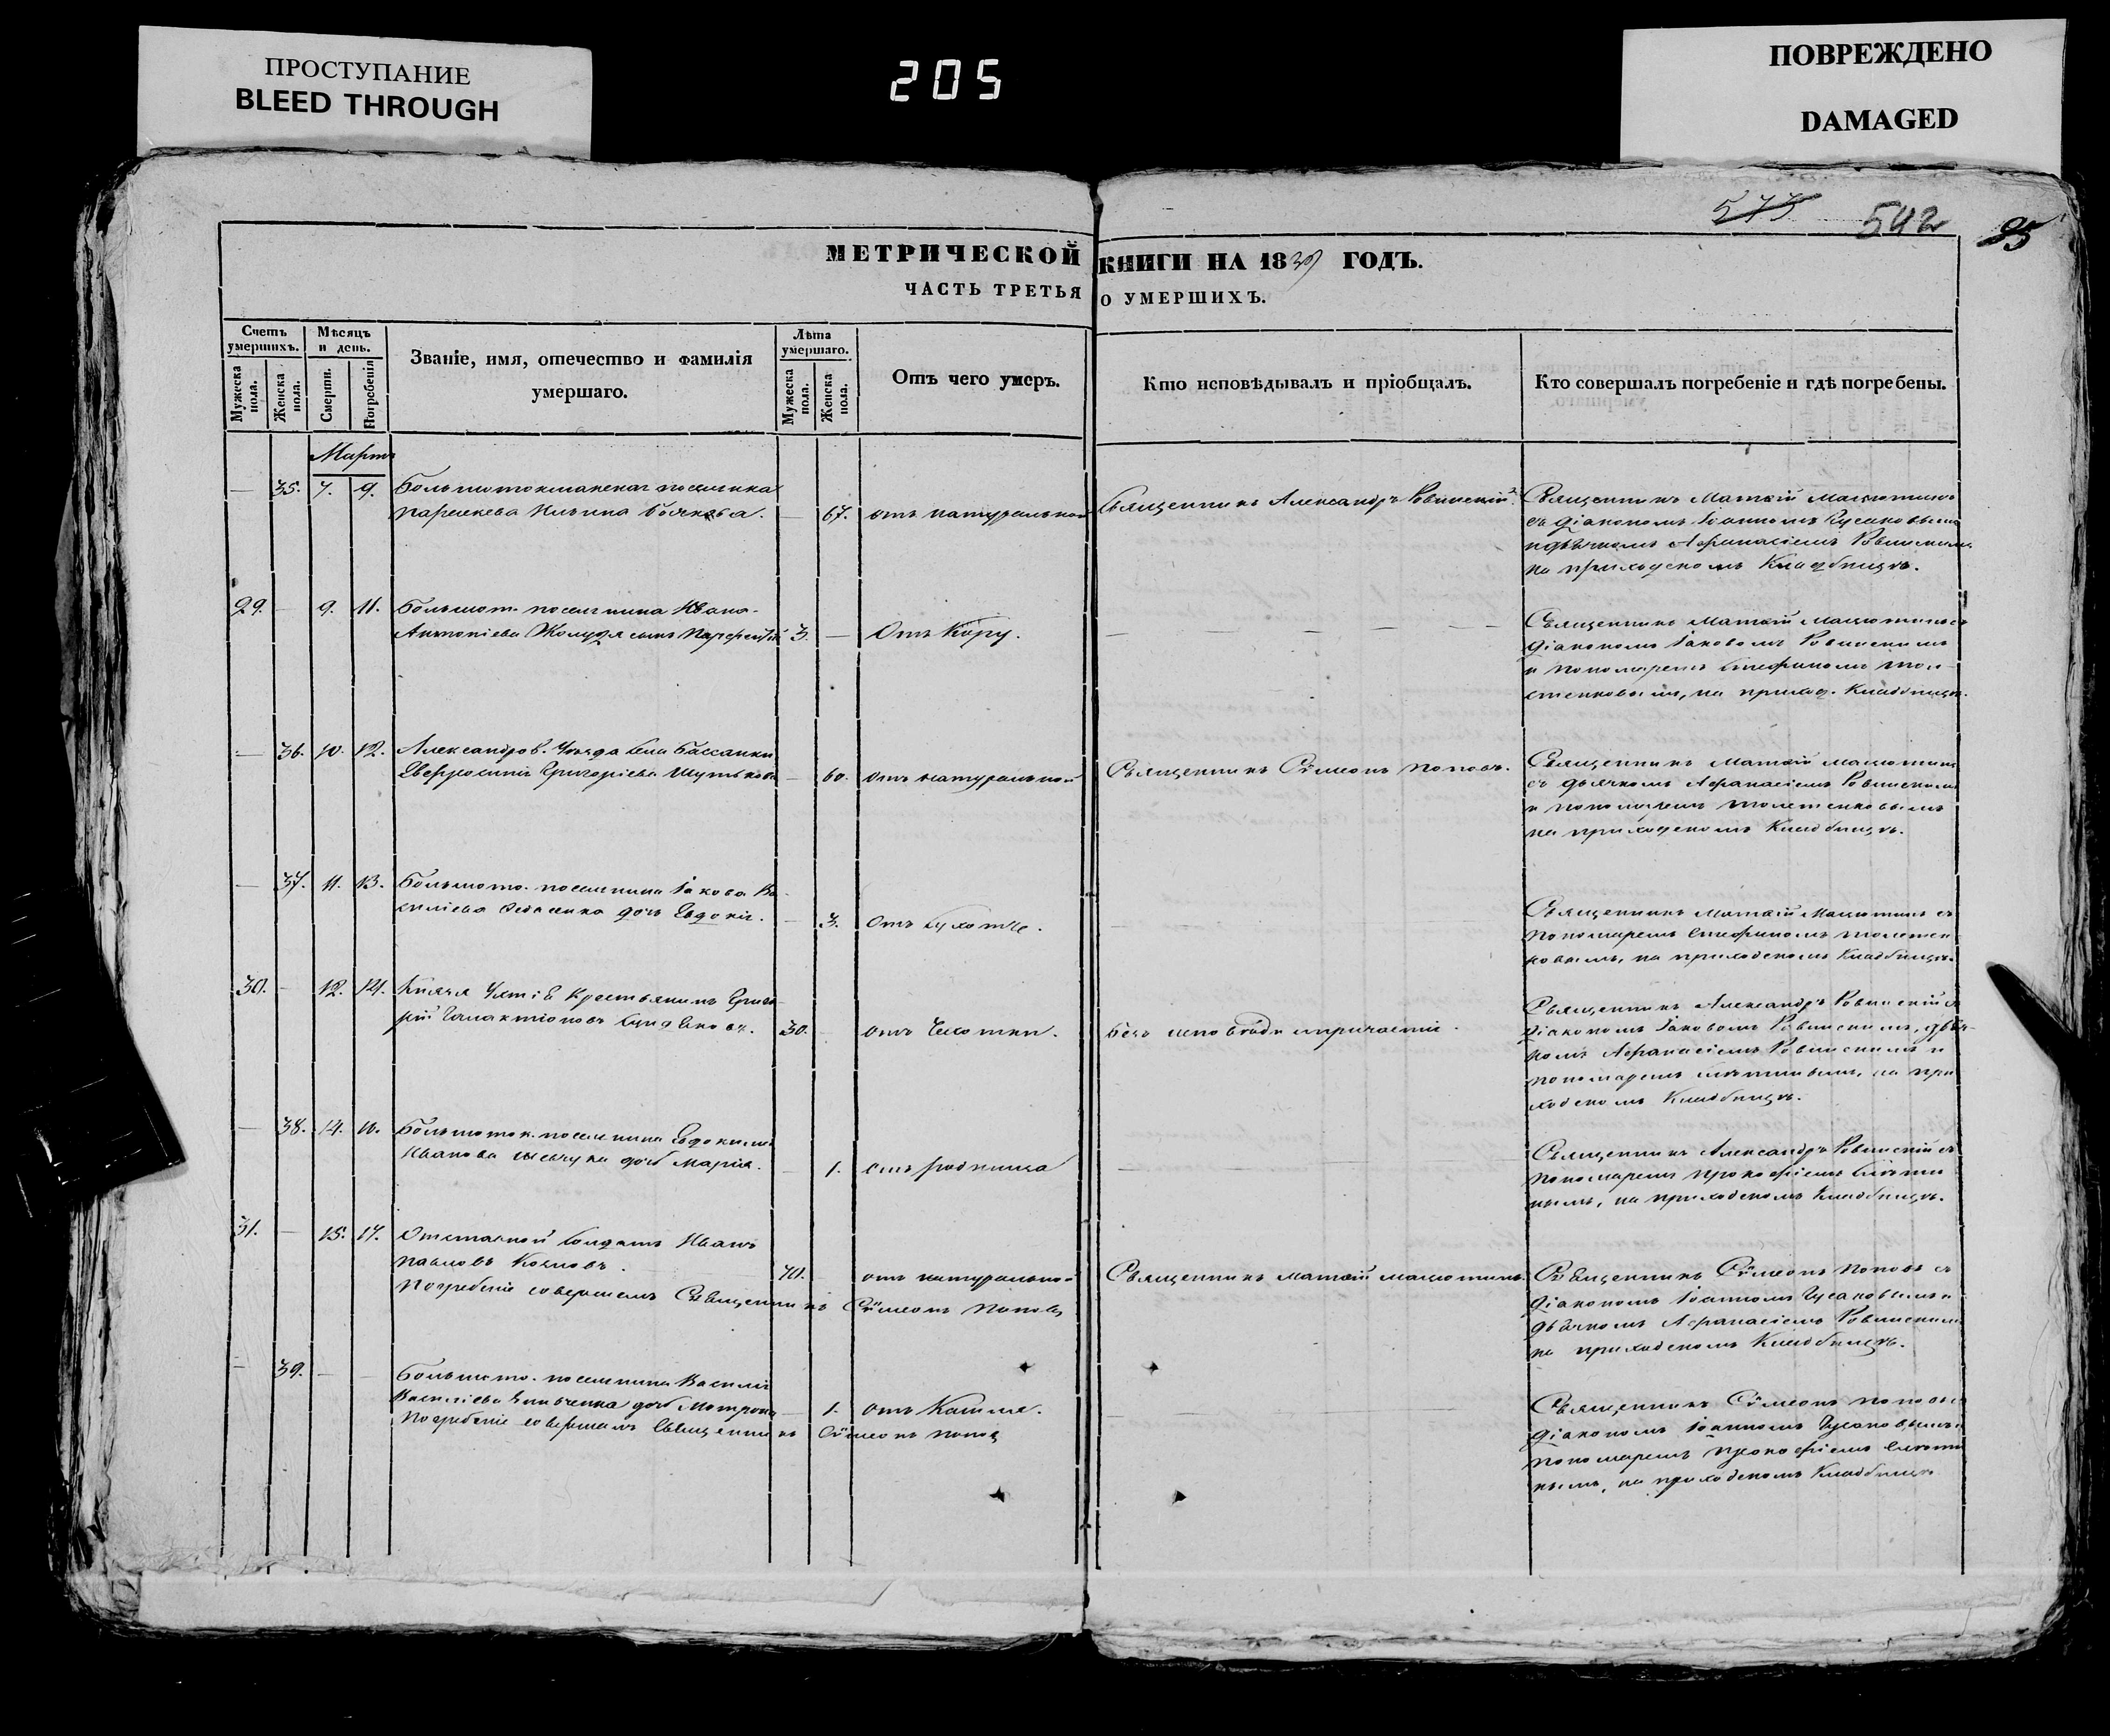 ПРОСТУПАНИЕ
BLEED THROUGH
205
ПОВРЕЖДЕНО
DAMAGED
575
542
95
МЕТРИЧЕСКОЙ КНИГИ НА 1839 ГОДЪ.
ЧАСТЬ ТРЕТЬЯ О УМЕРШИХЪ.
Счетъ умершихъ.
Мужеска пола.
Женска пола.
Мѣсяцъ и день.
Смерти.
Погребенія
Званіе, имя, отечество и фамилія
умершаго.
Лѣта умершаго.
Мужеска пола.
Женска пола.
Отъ чего умеръ.
Кто исповѣдывалъ и пріобщалъ.
Кто совершалъ погребеніе и гдѣ погребены.
Мартъ
— 35. 7. 9. Большотокмакская поселянка
Параскева Ильина — 67. отъ натуральной
Священникъ Александръ Ровинскій
Священникъ Матѳій Мацютинъ
съ діакономъ Іоанномъ Гусаковымъ
Аѳанасіемъ Ровинскимъ
на приходскомъ Кладбищѣ.
29. — 9. 11. Большот. поселянина Ивана
Антоніева сынъ 3. — Отъ Кору.
Священникъ Матѳій Мацютинъ съ
діакономъ Іаковомъ Ровинскимъ
и пономаремъ Стефаномъ Тол-
стенковымъ, на приход. Кладбищѣ.
— 36. 10. 12. Александров. уѣзда
Евфросинія Григоріева — 60. отъ натуральной
Священникъ Сѵмеонъ Поповъ.
Священникъ Матѳій Мацютинъ
съ дьячкомъ Аѳанасіемъ Ровинскимъ
и пономаремъ Толстенковымъ
на приходскомъ Кладбищѣ.
— 37. 11. 13. Большото. поселянина Іакова Ва-
силіева дочь Евдокія. — 3. Отъ сухотъ.
Священникъ Матѳій Мацютинъ съ
пономаремъ Стефаномъ Толстен-
ковымъ, на приходскомъ Кладбищѣ.
30. — 12. 14. Князя Крестьянинъ Григо-
рій Галактіоновъ 30. отъ Чахотки.
Безъ исповѣди и причастія.
Священникъ Александръ Ровинскій съ
діакономъ Іаковомъ Ровинскимъ, дьяч-
комъ Аѳанасіемъ Ровинскимъ и
пономаремъ на при-
ходскомъ Кладбищѣ.
— 38. 14. 16. Большоток. поселянина Евдокима
Иванова Шевчука дочь Марія. — 1. отъ родимца
Священникъ Александръ Ровинскій съ
пономаремъ Прокофіемъ
на приходскомъ Кладбищѣ.
31. — 15. 17. Отставной Солдатъ Иванъ
Павловъ Козловъ. 70. отъ натуральной
Погребеніе совершалъ Священникъ Сѵмеонъ Поповъ
Священникъ Матѳій Мацютинъ.
Священникъ Сѵмеонъ Поповъ съ
діакономъ Іоанномъ Гусаковымъ и
дьячкомъ Аѳанасіемъ Ровинскимъ
на приходскомъ Кладбищѣ.
— 39. — — Большото. поселянина Василія
Василіева дочь Матрона — 1. отъ Кашля.
Погребеніе совершалъ Священникъ Сѵмеонъ Поповъ
Священникъ Сѵмеонъ Поповъ съ
діакономъ Іоанномъ Гусаковымъ и
пономаремъ Прокофіемъ
на приходскомъ Кладбищѣ